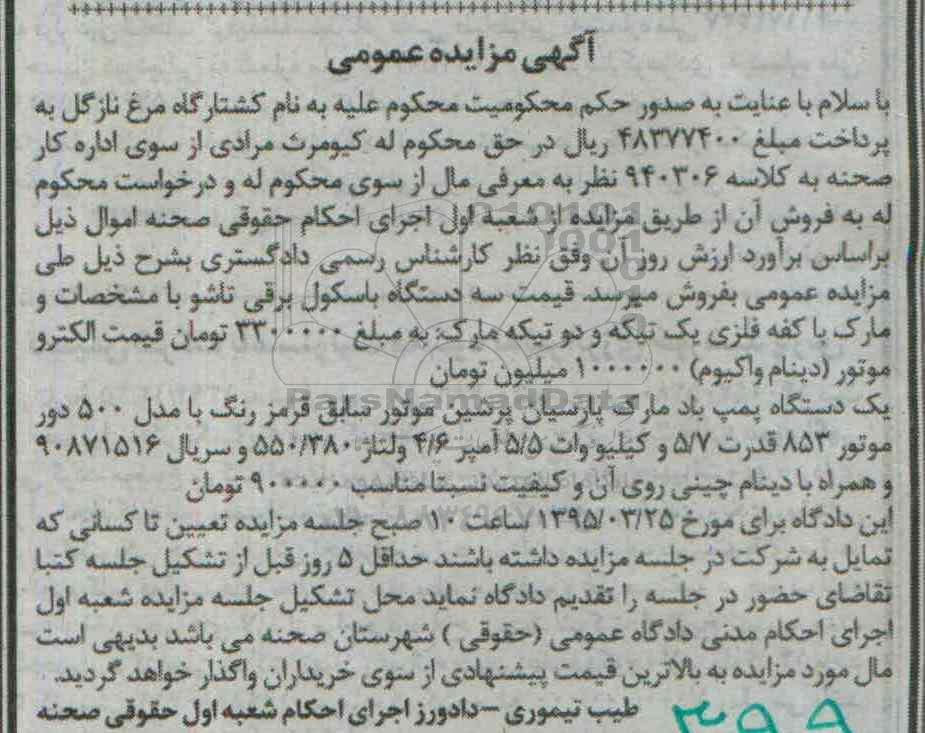 آگهی مزایده عمومی
با سلام با عنایت به صدور حکم محکومیت محکوم علیه به نام کشتارگاه مرغ نازگل به
پرداخت مبلغ ۴۸۳۷۷۴۰۰ ریال در حق محکوم له کیومرث مرادی از سوی اداره کار
صحنه به کلاسه ۹۴۰۳۰۶ نظر به معرفی مال از سوی محکوم له و درخواست محکوم
له به فروش آن از طریق مزایده از شعبه اول اجرای احکام حقوقی صحنه اموال ذیل
براساس برآورد ارزش روز آن وفق نظر کارشناس رسمی دادگستری بشرح ذیل طی
مزایده عمومی بفروش میرسد. قیمت سه دستگاه باسکول برقی تاشو با مشخصات و
مارک با کفه فلزی یک تیکه و دو تیکه مارک: به مبلغ ۳۳۰۰۰۰۰ تومان قیمت الکترو
موتور (دینام واکیوم) ۱۰۰۰۰۰۰ میلیون تومان
ParsNamadData
یک دستگاه پمپ باد مارک پارسیان پرشین موتور سابق قرمز رنگ با مدل ۵۰۰ دور
موتور ۸۵۳ قدرت ۵/۷ و کیلیو وات ۵/۵ آمپر ۴/۶ ولتاژ ۵۵۰/۳۸۰ و سریال ۹۰۸۷۱۵۱۶
و همراه با دینام چینی روی آن و کیفیت نسبتا مناسب ۹۰۰۰۰۰ تومان
این دادگاه برای مورخ ۱۳۹۵/۰۳/۲۵ ساعت ۱۰ صبح جلسه مزایده تعیین تا کسانی که
تمایل به شرکت در جلسه مزایده داشته باشند حداقل ۵ روز قبل از تشکیل جلسه کتبا
تقاضای حضور در جلسه را تقدیم دادگاه نماید محل تشکیل جلسه مزایده شعبه اول
اجرای احکام مدنی دادگاه عمومی (حقوقی ) شهرستان صحنه می باشد بدیهی است
مال مورد مزایده به بالاترین قیمت پیشنهادی از سوی خریداران واگذار خواهد گردید.
طیب تیموری –دادورز اجرای احکام شعبه اول حقوقی صحنه